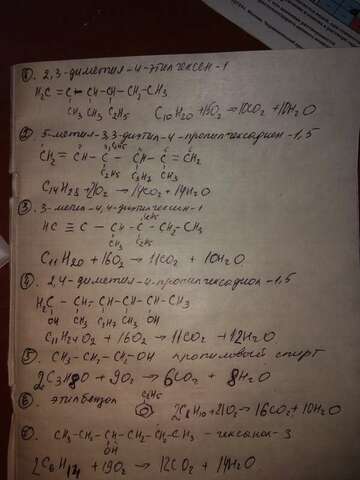 1. 2,3-диметил-4-этилгексен-1
H₂C = C - CH - CH - CH₂ - CH₃
CH₃ CH₃ C₂H₅ C₁₀H₂₀ + 15O₂ = 10CO₂ + 10H₂O
2. 5-метил-3,3-диэтил-4-пропилгексадиен-1,5
C₂H₅
CH₂ = CH - C - CH - C = CH₂
C₂H₅ C₃H₇ CH₃
→ 14CO₂ + 14H₂O
3. 3-метил-4,4-диэтилгексин-1
C₂H₅
HC ≡ C - CH - C - CH₂ - CH₃
CH₃ C₂H₅
C₁₁H₂₀ + 16O₂ → 11CO₂ + 10H₂O
4. 2,4-диметил-4-пропилгексадиол-1,5
H₂C - CH - CH - CH - CH - CH₃
OH CH₃ C₃H₇ CH₃ OH
C₁₁H₂₄O₂ + 16O₂ → 11CO₂ + 12H₂O
5. CH₃ - CH₂ - CH₂ - OH пропиловый спирт
2C₃H₈O + 9O₂ → 6CO₂ + 8H₂O
6. этилбензол C₂H₅ 2C₈H₁₀ + 21O₂ → 16CO₂ + 10H₂O
7. CH₃ - CH₂ - CH - CH₂ - CH₂ - CH₃ - гексанол-3
OH
2C₆H₁₄ + 19O₂ → 12CO₂ + 14H₂O